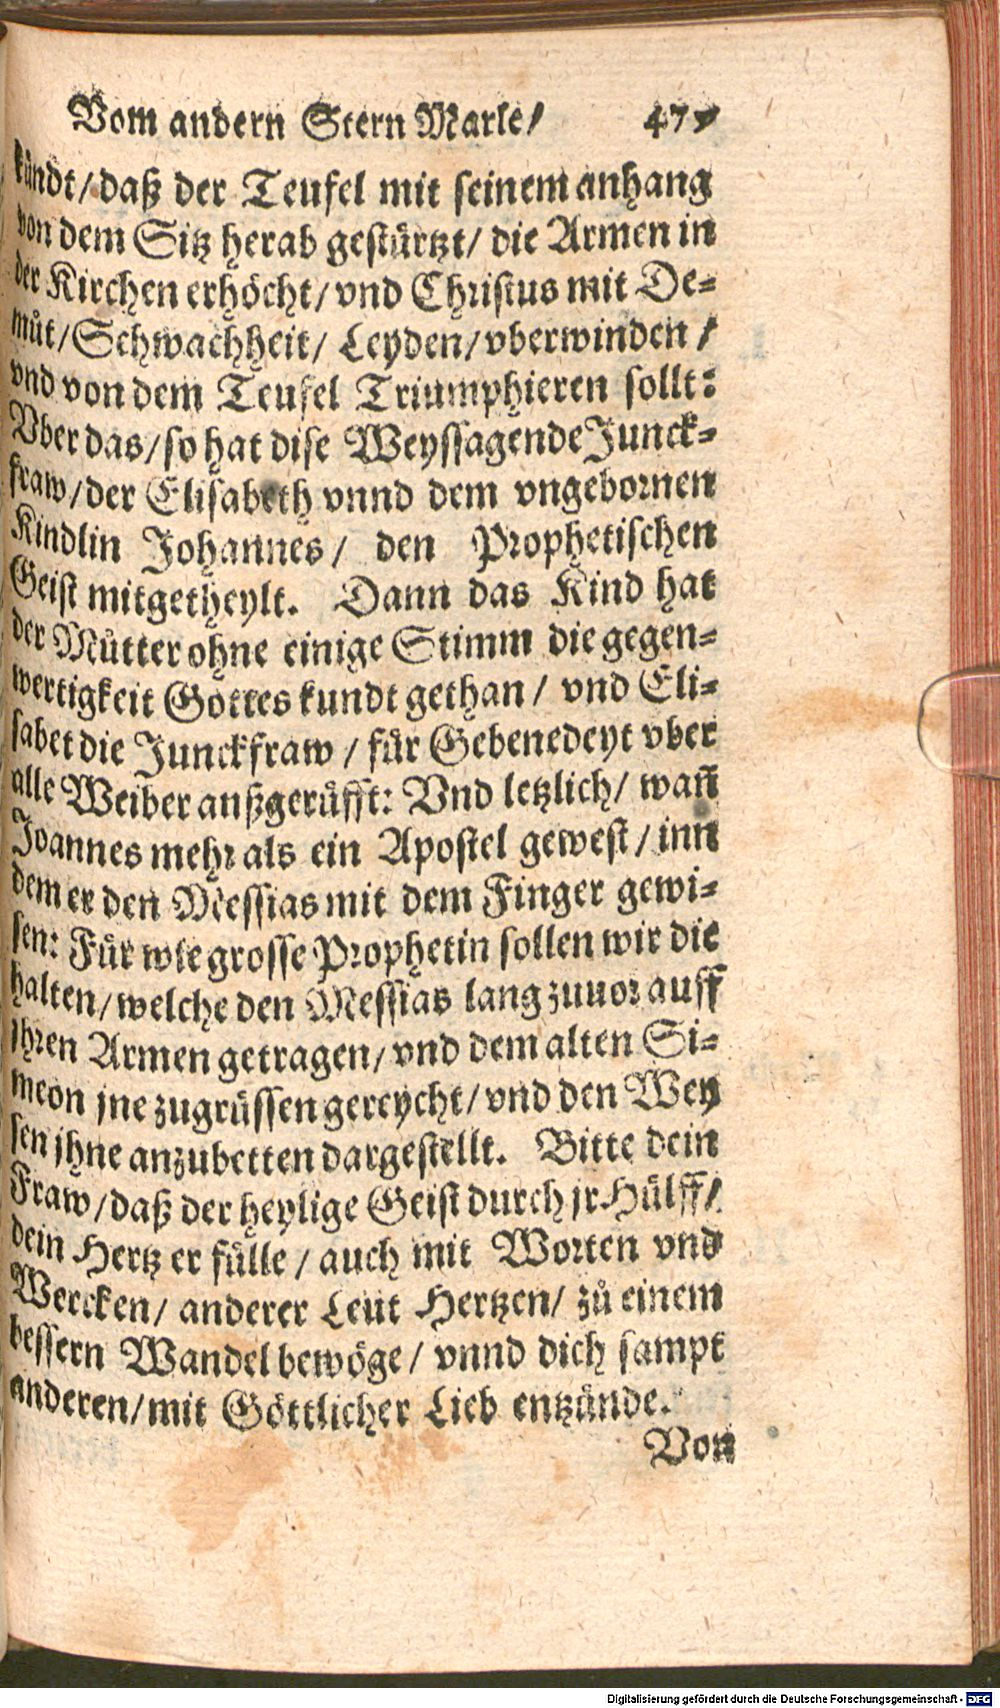 Vom andern Stern Marie/ 47
kündt/daß der Teufel mit seinem anhang
von dem Sitz herab gestürtzt/ die Armen in
der Kirchen erhöcht/ vnd Christus mit De-
můt/Schwachheit/ Leyden/ vberwinden/
vnd von dem Teufel Triumphieren sollt:
Vber das/ so hat dise Weyssagende Junck-
fraw/der Elisabeth vnnd dem vngebornen
Kindlin Johannes/ den Prophetischen
Geist mitgetheylt. Dann das Kind hat
der Můtter ohne einige Stimm die gegen-
wertigkeit Gottes kundt gethan/ vnd Eli-
sabet die Junckfraw/ für Gebenedeyt vber
alle Weiber außgerüfft: Vnd letzlich/ wañ
Joannes mehr als ein Apostel gewest/ inn
dem er den Messias mit dem Finger gewi-
sen: Für wie grosse Prophetin sollen wir die
halten/welche den Messias lang zuuor auff
jhren Armen getragen/ vnd dem alten Si-
meon jne zugrüssen gereycht/ vnd den Wey
sen jhne anzubetten dargestellt. Bitte dein
Fraw/daß der heylige Geist durch jr Hülff/
dein Hertz er fülle/ auch mit Worten vnd
Wercken/ anderer Leut Hertzen/ zů einem
bessern Wandel bewöge/ vnnd dich sampt
anderen/mit Göttlicher Lieb entzünde.
Von
Digitalisierung gefördert durch die Deutsche Forschungsgemeinschaft - DFG